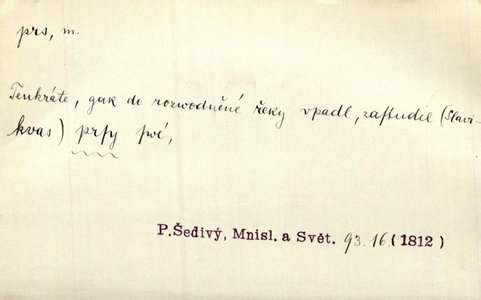 prs, m.
Tenkráte, gak do rozwodněné řeky vpadl, zastudil (Slavi-
kvas) prsy swé,
P. Šedivý, Mnisl. a Svět. 93.16. (1812)